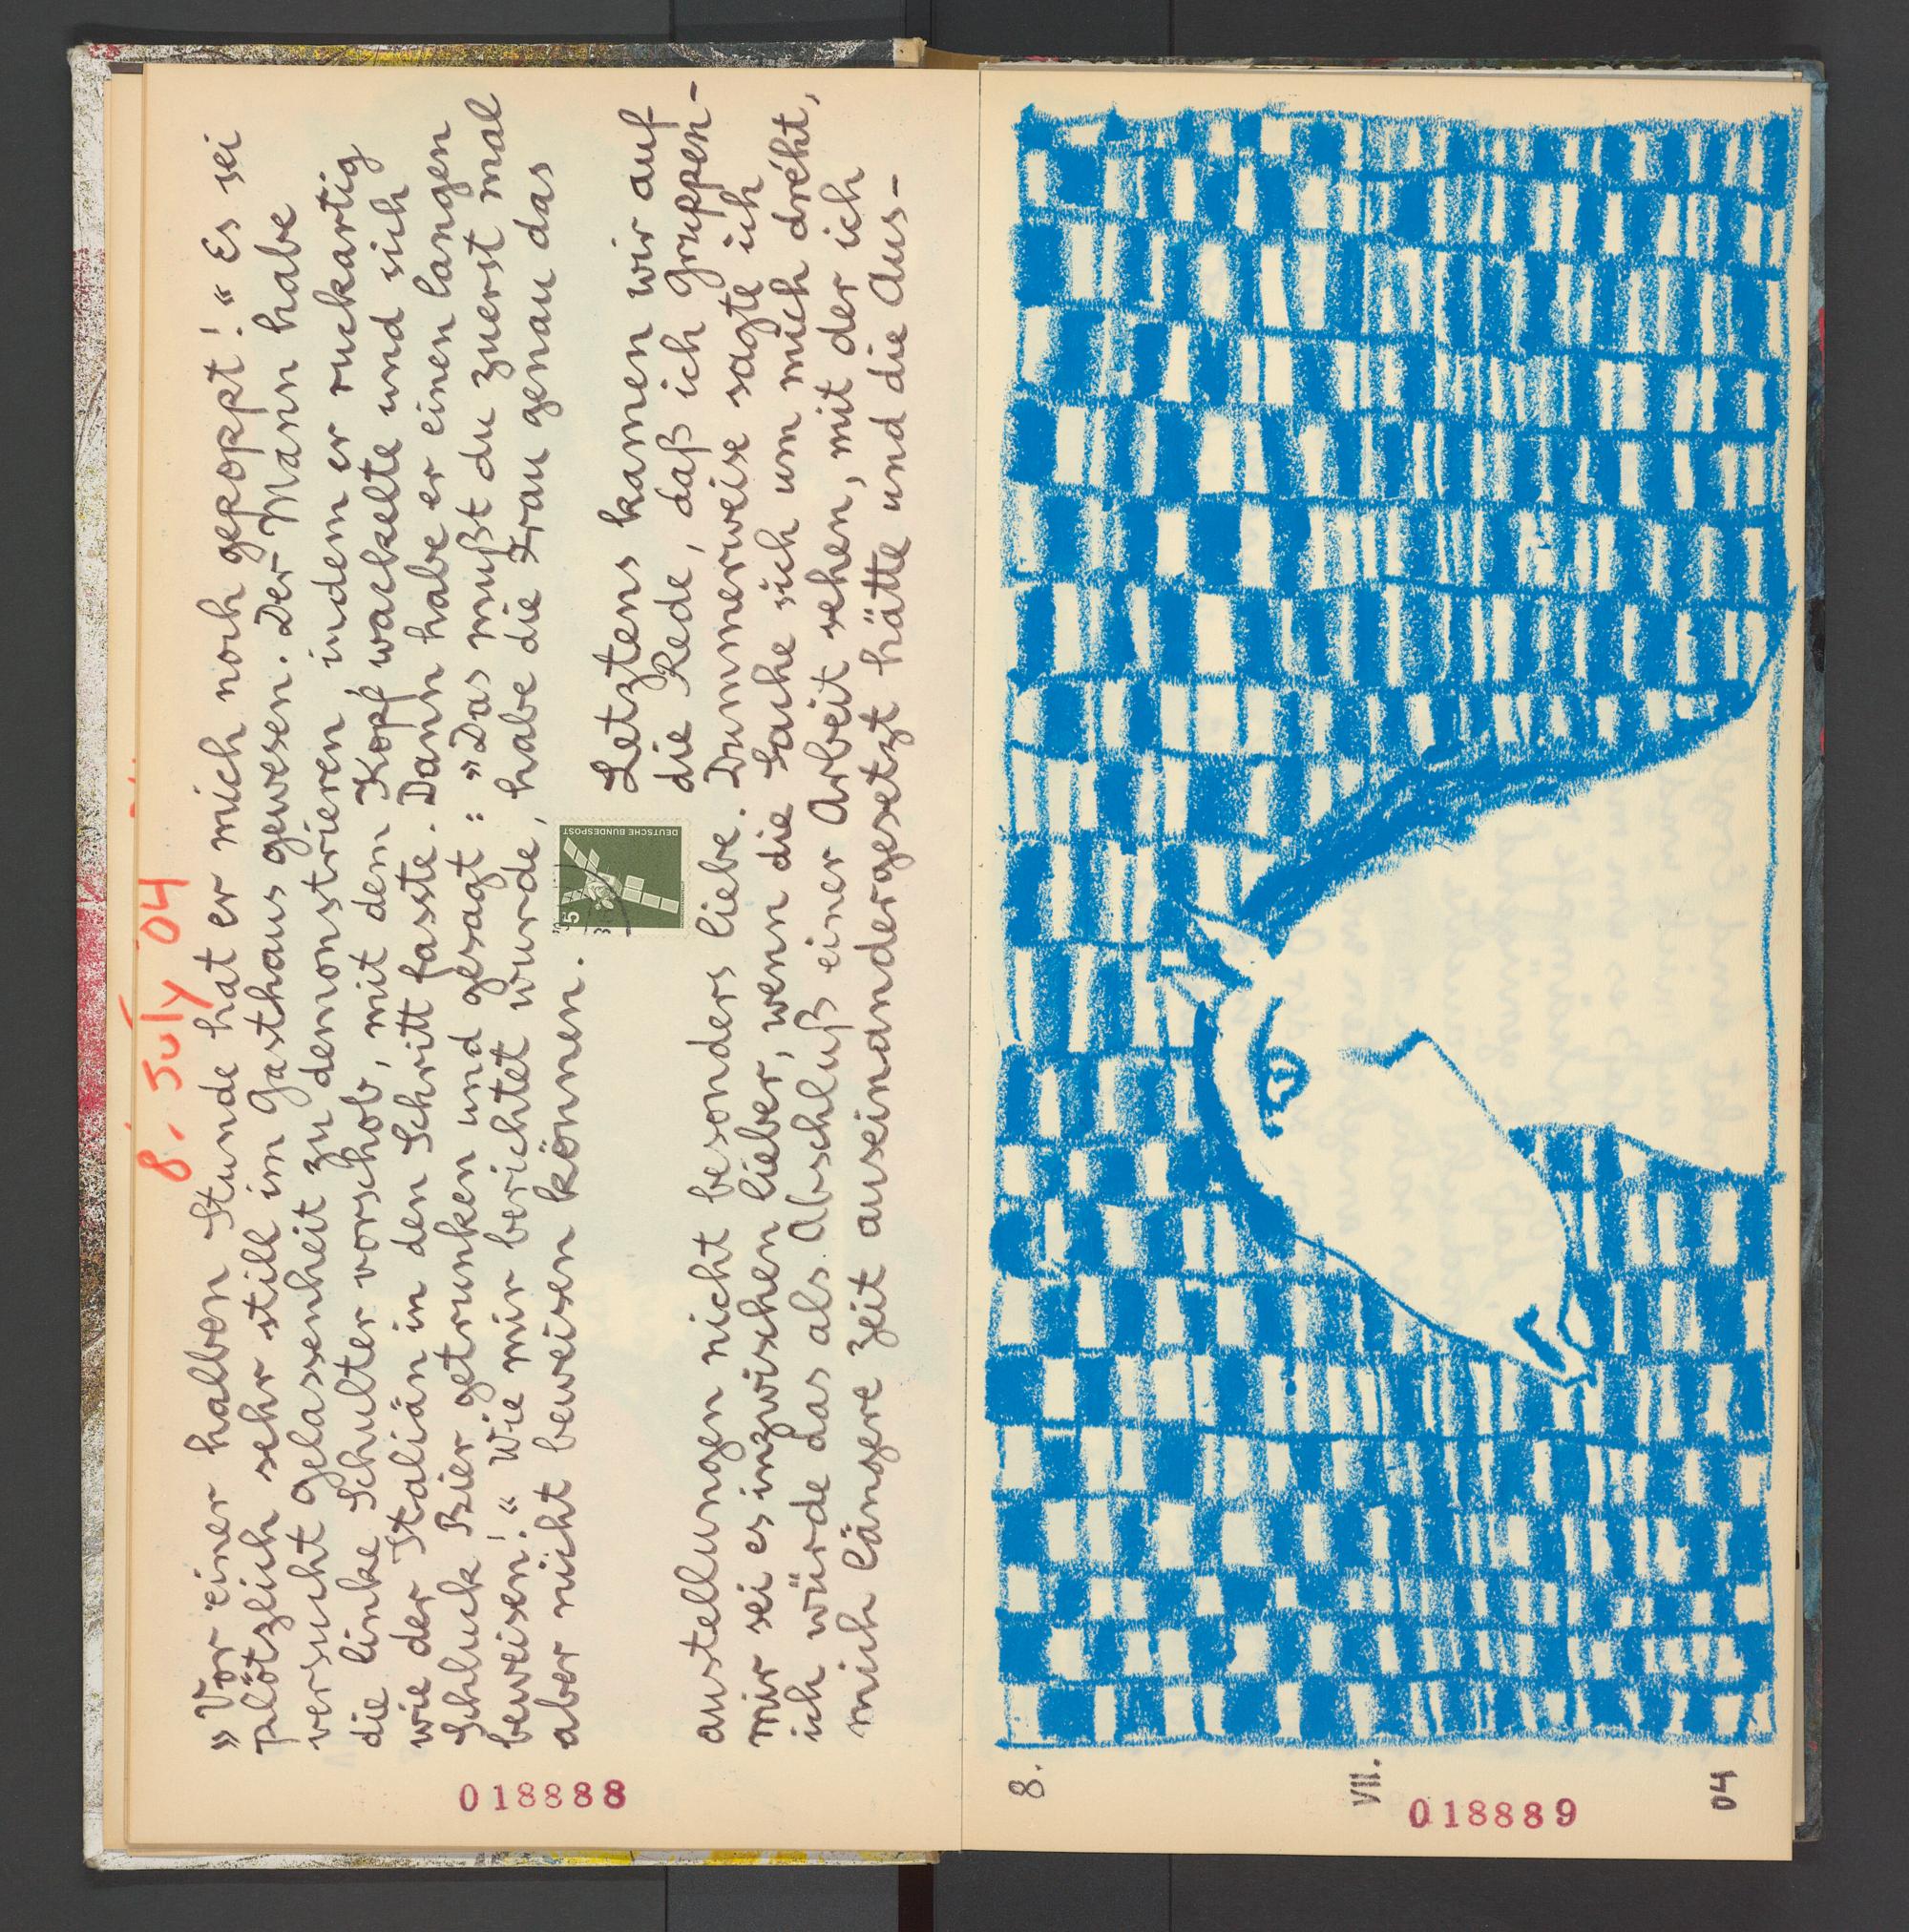 8. July '04
»Vor einer halben Stunde hat er mich noch gepoppt!“ Es sei
plötzlich sehr still im Gasthaus gewesen. Der Mann habe
versucht Gelassenheit zu demonstrieren, indem er ruckartig
die linke Schulter vorschob, mit dem Kopf wackelte und sich
wie der Stalián in den Schritt fasste. Dann habe er einen langen
Schluck Bier getrunken und gesagt: »Das mußt du zuerst mal
beweisen!“ Wie mir berichtet wurde, habe die Frau genau das
aber nicht beweisen können.
Letztens kamen wir auf
die Rede, daß ich Gruppen-
austellungen nicht besonders liebe. Dummerweise sagte ich
mir sei es inzwischen lieber, wenn die Sache sich um mich dreht,
ich würde das als Abschluß einer Arbeit sehen, mit der ich
mich längere Zeit auseinandergesetzt hätte und die Aus-
DEUTSCHE BUNDESPOST
5
018888
8.
VII.
04
018889